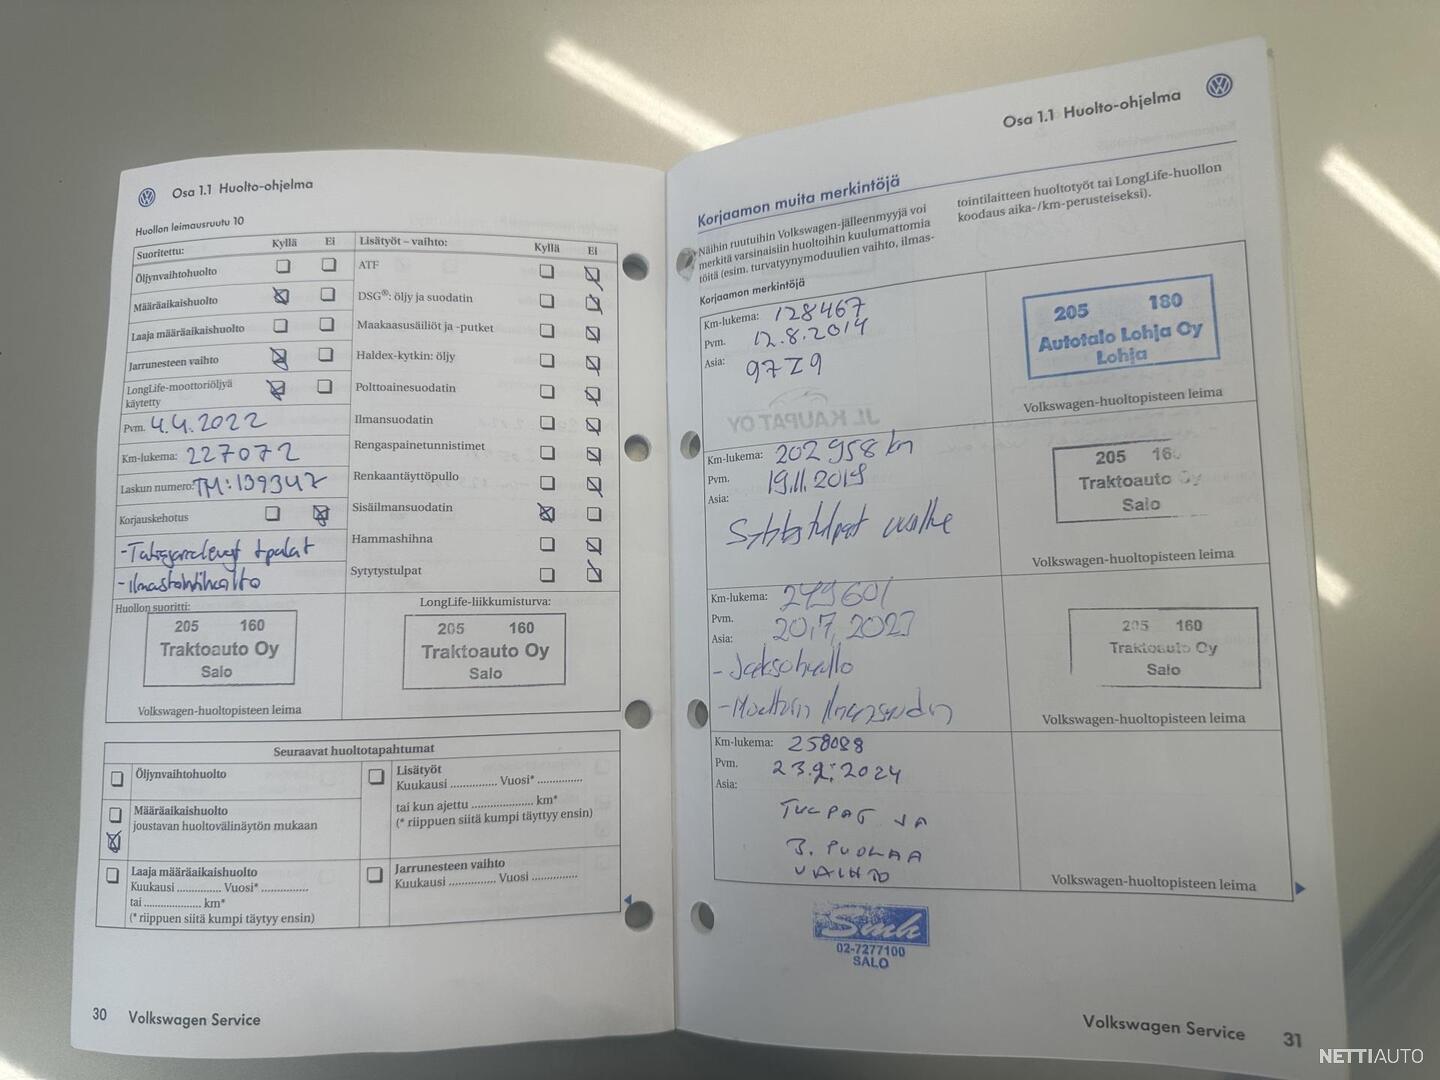 Osa 1.1 Huolto-ohjelma
Huollon leimausruutu 10
Suoritettu: Kyllä Ei
Öljynvaihtohuolto
Määräaikaishuolto
Laaja määräaikaishuolto
Jarrunesteen vaihto
LongLife-moottoriöljyä
käytetty
Pvm. 4.4.2022
Km-lukema: 227072
Laskun numero: TM:139347
Korjauskehotus
- Takajarrulevyt + palat
- Ilmastointihuolto
Huollon suoritti:
205 160
Traktoauto Oy
Salo
Volkswagen-huoltopisteen leima
Lisätyöt – vaihto: Kyllä Ei
ATF
DSG®: öljy ja suodatin
Maakaasusäiliöt ja -putket
Haldex-kytkin: öljy
Polttoainesuodatin
Ilmansuodatin
Rengaspainetunnistimet
Renkaantäyttöpullo
Sisäilmansuodatin
Hammashihna
Sytytystulpat
LongLife-liikkumisturva:
205 160
Traktoauto Oy
Salo
Seuraavat huoltotapahtumat
Öljynvaihtohuolto
Määräaikaishuolto
joustavan huoltovälinäytön mukaan
Laaja määräaikaishuolto
Kuukausi .............. Vuosi* ...............
tai .................... km*
(* riippuen siitä kumpi täytyy ensin)
Lisätyöt
Kuukausi .............. Vuosi* ..............
tai kun ajettu .................... km*
(* riippuen siitä kumpi täyttyy ensin)
Jarrunesteen vaihto
Kuukausi .............. Vuosi ..............
30 Volkswagen Service
Osa 1.1 Huolto-ohjelma
Korjaamon muita merkintöjä
Näihin ruutuihin Volkswagen-jälleenmyyjä voi
merkitä varsinaisiin huoltoihin kuulumattomia
töitä (esim. turvatyynymoduulien vaihto, ilmas-
tointilaitteen huoltotyöt tai LongLife-huollon
koodaus aika-/km-perusteiseksi).
Korjaamon merkintöjä
Km-lukema: 128467
Pvm. 12.8.2014
Asia: 97Z9
205 180
Autotalo Lohja Oy
Lohja
Volkswagen-huoltopisteen leima
JL KAUPAT OY
Km-lukema: 202 958 km
Pvm. 19.11.2019
Asia:
Sytytystulpat vaihto
205
Traktoauto Oy
Salo
Volkswagen-huoltopisteen leima
Km-lukema: 249601
Pvm. 20.7.2023
Asia:
- Jaksohuolto
- Moottorin ilmansuodatin
205 160
Traktoauto Oy
Salo
Volkswagen-huoltopisteen leima
Km-lukema: 258088
Pvm. 23.2.2024
Asia:
TULPAT JA
3. PUOLAA
VAIHTO
Volkswagen-huoltopisteen leima
02-7277100
SALO
Volkswagen Service 31
NETTIAUTO